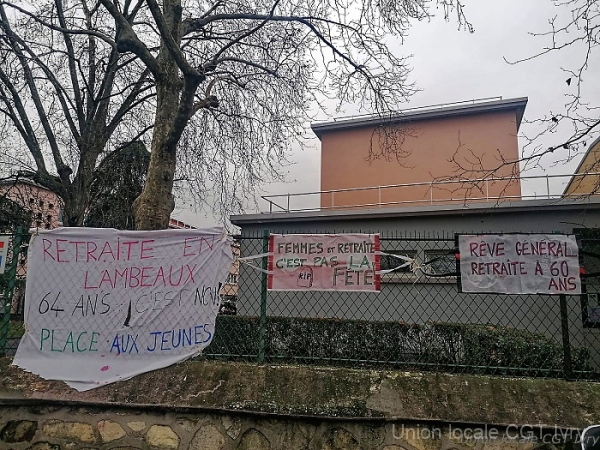 RETRAITE EN
LAMBEAUX
64 ANS C'EST NON!
PLACE AUX JEUNES
FEMMES ET RETRAITE
C'EST PAS LA
FÊTE
RIP
RÊVE GÉNÉRAL
RETRAITE À 60
ANS
Union locale CGT Ivry